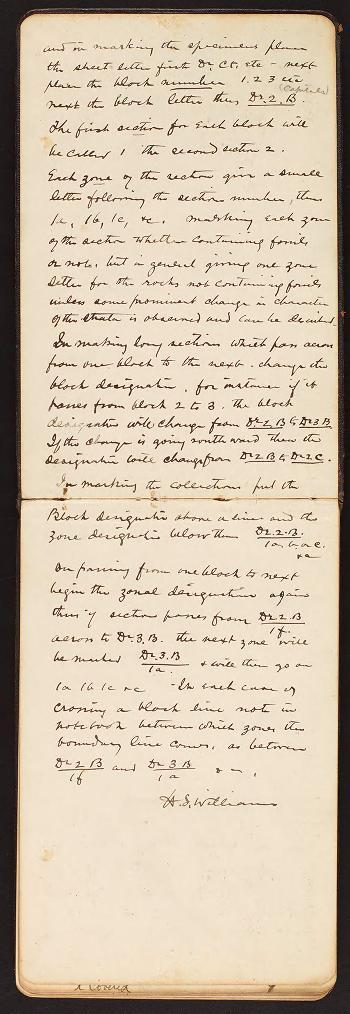 and in marking the specimens place
the sheet letter first Dr. Ct. etc – next
place the block number 1. 2 3 etc
(Capitals)
next the block letter thus Dr. 2. B.
The first section for each block will
be called 1 the second section 2.
Each zone of the section give a small
letter following the section number, thus
1a, 1b, 1c, &c. marking each zone
of the section whether containing fossils
or not. but in general giving one zone
letter for the rocks not containing fossils
unless some prominent change in character
of the strata is observed and can be described
In making long sections which pass across
from one block to the next. change the
block designation. for instance if it
passes from block 2 to 3. the block
designation will change from Dr. 2 B to Dr 3 B
If the change is going southward then the
designation will change from Dr 2 B to Dr 2 C.
In marking the collections put the
Block designation above a line and the
zone designation below thus Dr. 2. B.
1a. b. c.
&c
On passing from one block to next
begin the zonal designation again
thus if section passes from Dr. 2. B
1f.
across to Dr. 3. B. the next zone will
be marked Dr. 3. B
1a.
& will then go on
1a 1b 1c &c – In each case of
crossing a block line note in
notebook between which zones the
boundary line comes, as between
Dr 2 B and Dr 3 B
1f 1a
H. S. Williams